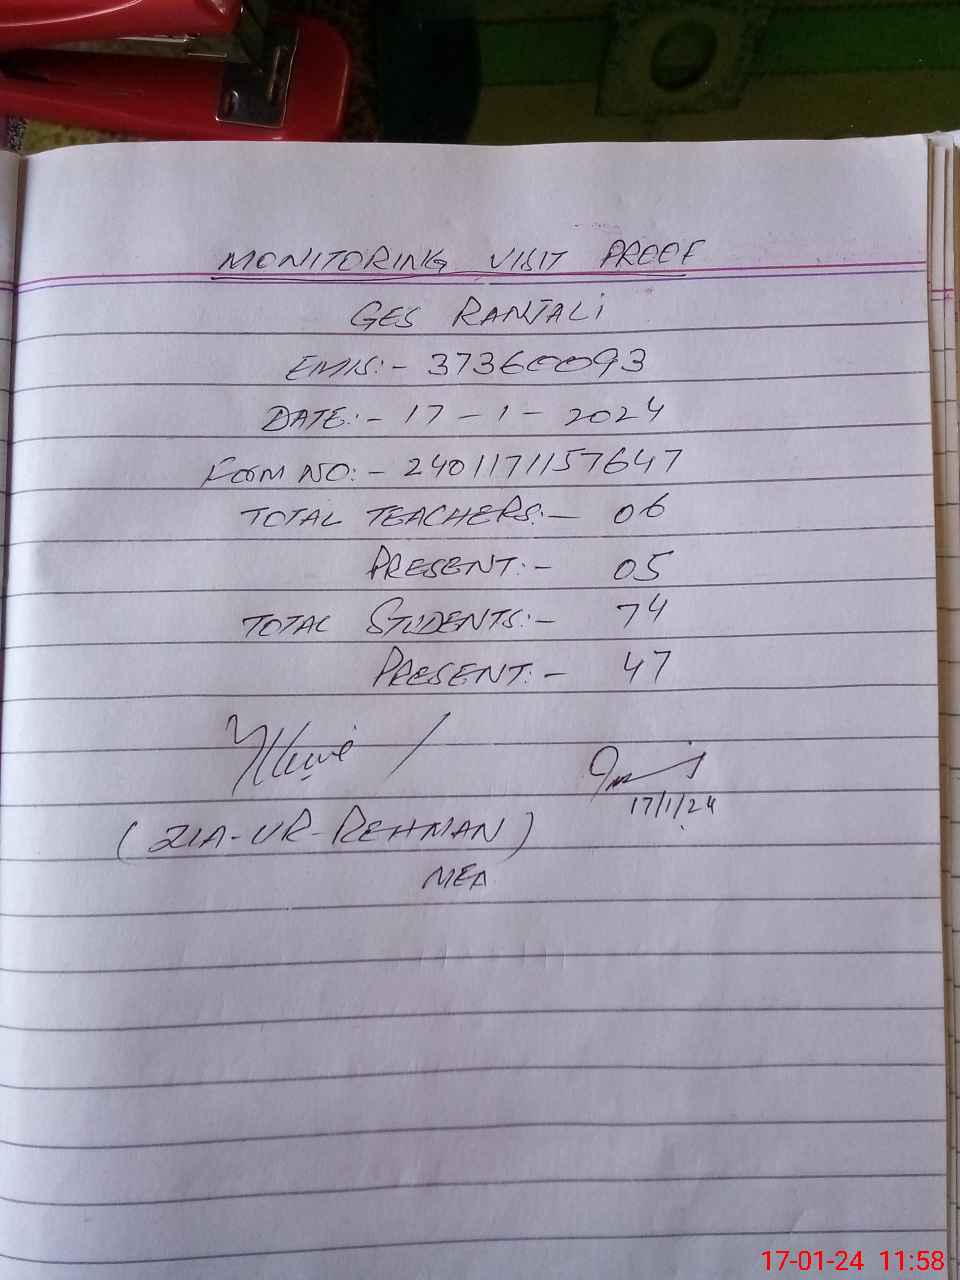 MONITORING VISIT PROOF
GES RANJALI
EMIS:- 37360093
DATE:- 17-1-2024
FORM NO:- 2401171157647
TOTAL TEACHERS:- 06
PRESENT:- 05
TOTAL STUDENTS:- 74
PRESENT:- 47
17/1/24
(ZIA-UR-REHMAN)
MEA
17-01-24 11:58